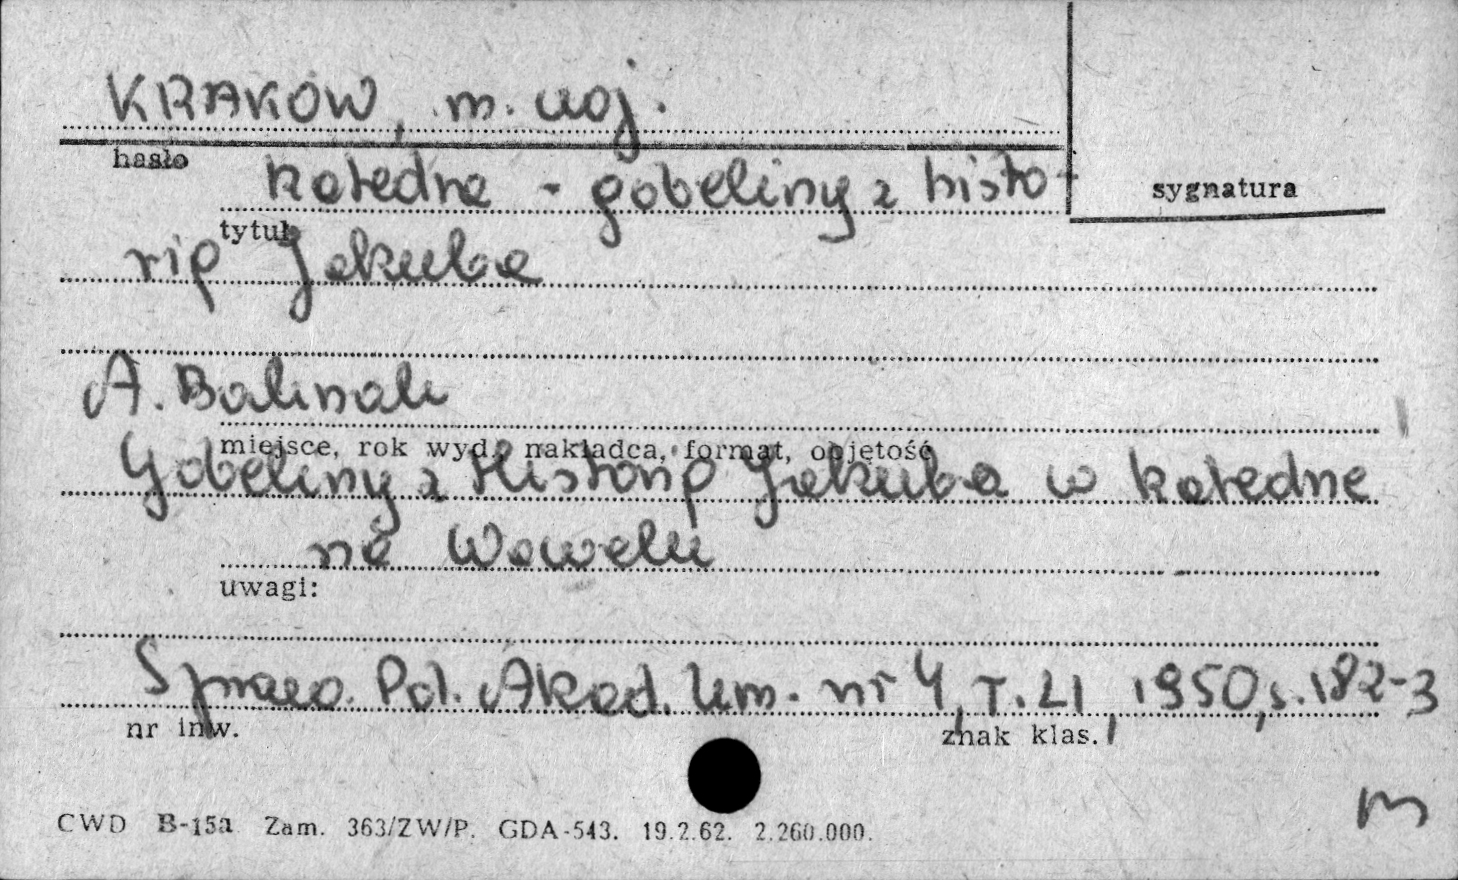 KRAKÓW, m. woj.
hasło
katedra - gobeliny z histo-
sygnatura
tytuł
rią Jakuba
A. Bochnak
miejsce, rok wyd., nakładca, format, objętość
Gobeliny z Historią Jakuba w katedrze
na Wawelu
uwagi:
Spraw. Pol. Akad. Um. nr 4, T. LI, 1950, s. 182-3
nr inw.
znak klas.
m
CWD B-15a Zam. 363/ZW/P. GDA-543. 19.2.62. 2.260.000.